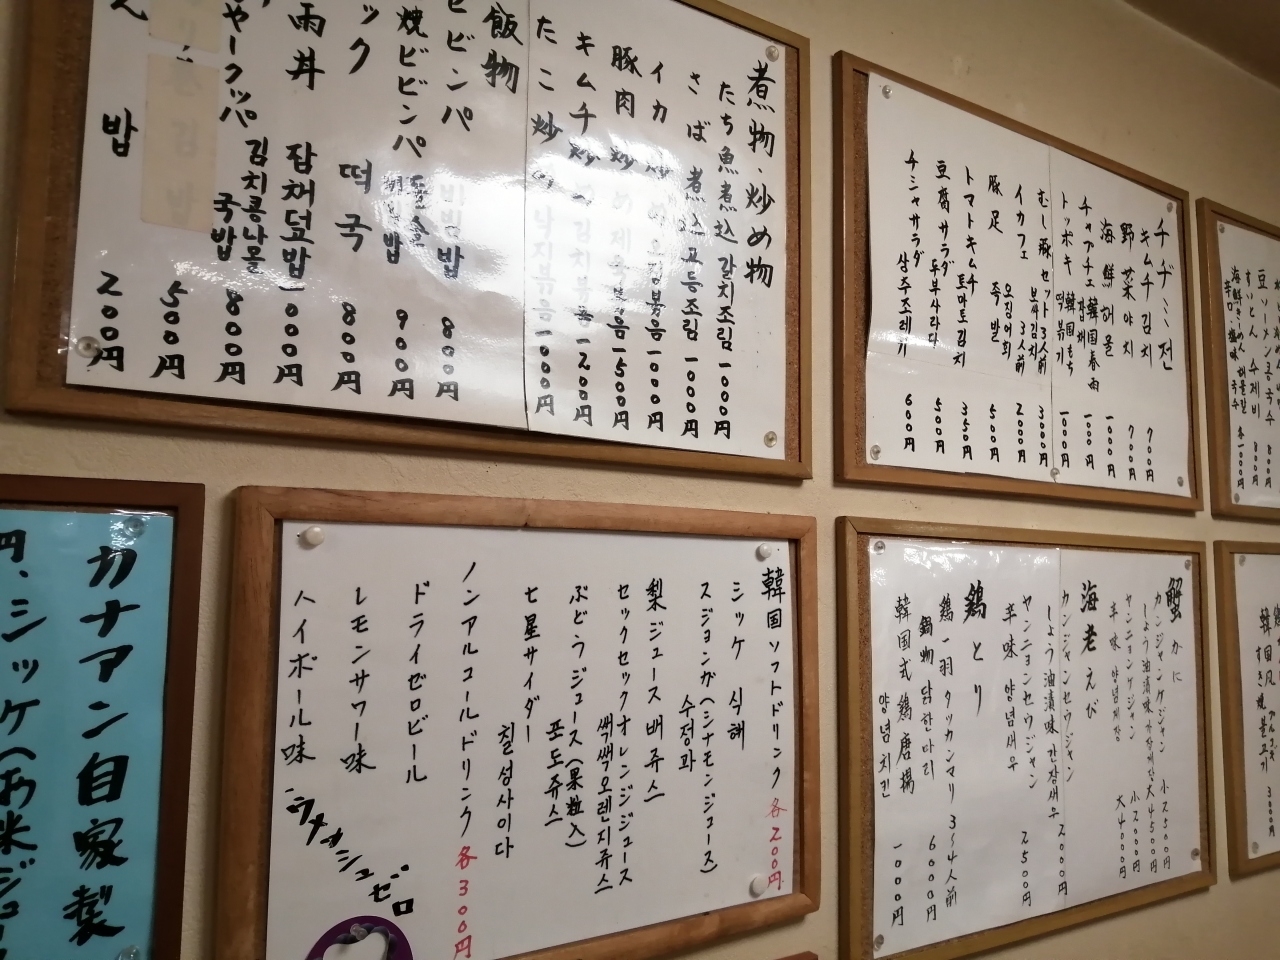 煮物、炒め物
たち魚煮込 갈치조림 一000円
さば煮込 고등조림 一000円
イカ炒め 오징볶음 一000円
豚肉炒め 제육볶음 一500円
キムチ炒め 김치볶음 一200円
たこ炒め 낙지볶음 一000円
飯物
ビビンパ 비빔밥 800円
焼ビビンパ 돌솥비빔밥 900円
ック 떡국 800円
雨丼 잡채덮밥 一000円
김치콩나물
국밥 800円
500円
밥 200円
チヂミ 전
キムチ 김치
野菜 야치 700円
海鮮 해물 一000円
チャプチェ 韓国春雨 잡채 一000円
トッポキ 韓国もち 떡볶기 一000円
むし豚セット3人前 보싸김치 3000円
イカフェ 3人前 오징어회 2000円
豚足 족발 500円
トマトキムチ 토마토김치 350円
豆腐サラダ 두부사라다 500円
チシャサラダ 상추조레기 600円
豆ソーメン 콩국수 800円
すいとん 수제비 800円
カナアン自家製
円、シッケ(お米ジュー
韓国ソフトドリンク 各200円
シッケ 식혜
スジョンガ(シナモンジュース)
수정과
梨ジュース 배쥬스
セックセックオレンジジュース
쌕쌕오렌지쥬스
ぶどうジュース(果粒入)
포도쥬스
七星サイダー
칠성사이다
ノンアルコールドリンク 各300円
ドライゼロビール
レモンサワー味
ハイボール味
ウメッシュゼロ
蟹かに
カンジャンケジャン 小2500円
しょう油漬味 간장게장 大4500円
ヤンニョンケジャン 小2000円
辛味 양념게장 大4000円
海老えび
カンジャンセウジャン
しょう油漬味 간장새우 2000円
ヤンニョンセウジャン
辛味 양념새우 2500円
鶏とり
鶏一羽タッカンマリ 3~4人前
鍋物 닭한마리 6000円
韓国式鶏唐揚
양념치킨 一000円
韓国風
すき焼 불고기 3000円